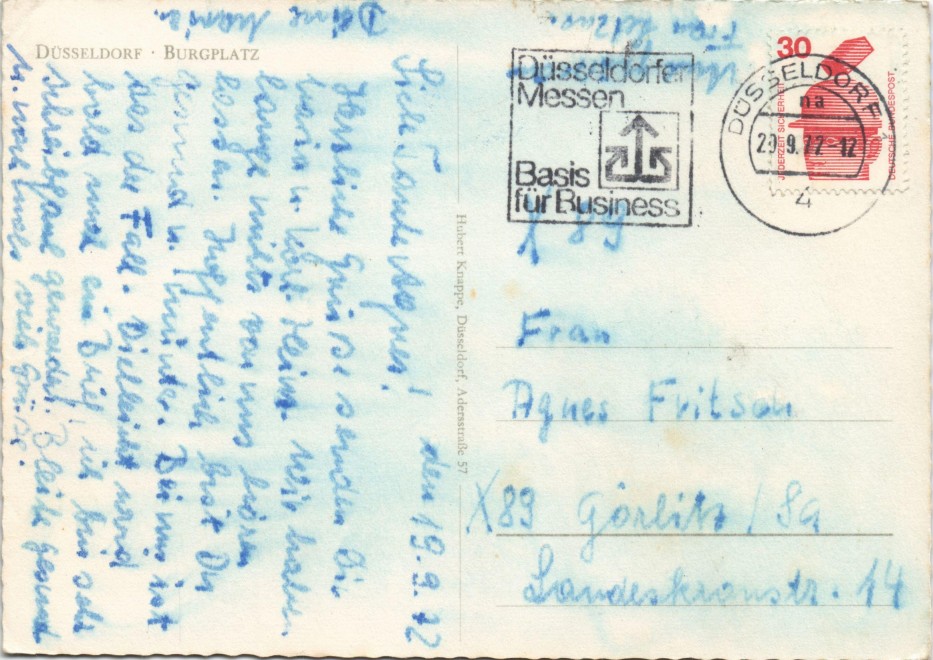 DÜSSELDORF · BURGPLATZ
Liebe Tante Agnes! den 19.9.72
Herzliche Grüsse senden Dir
u. Karl-Heinz. Wir haben
lange nichts von uns hören
lassen. Hoffentlich bist Du
gesund u. munter. Bei mir ist
das der Fall. Vielleicht wird
bald mal ein Brief, ich bin sehr
schreibfaul geworden. Bleibe gesund
u. nochmals viele Grüsse.
Deine
Frau
Hubert Knappe, Düsseldorf, Adersstraße 57
Düsseldorfer
Messen
Basis
für Business
DÜSSELDORF 1
na
9.72-12
4
30
JEDERZEIT SICHERHEIT
DEUTSCHE BUNDESPOST
X 89
Frau
Agnes Fritsch
X89 Görlitz / Sa
Landeskronstr. 14